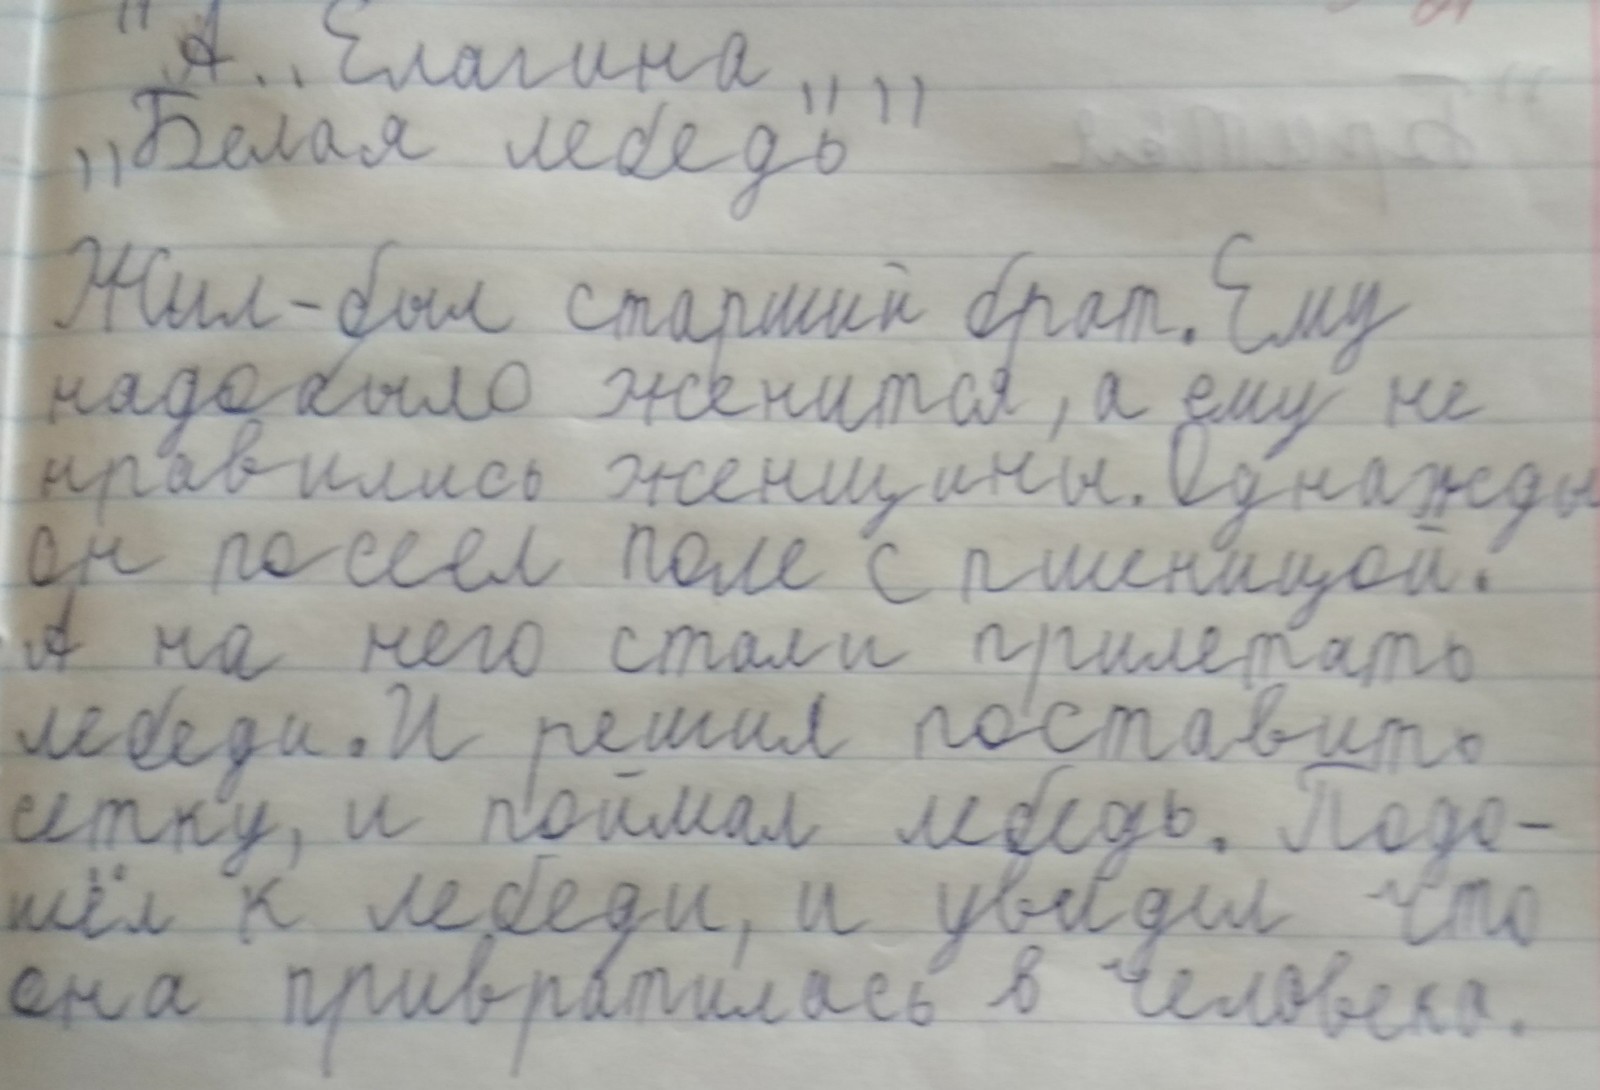 "А. Елагина
„Белая лебедь""
Жил-был старший брат. Ему
надо было женится, а ему не
нравились женщины. Однажды
он посеел поле с пшеницой.
А на него стали прилетать
лебеди. И решил поставить
сетку, и поймал лебедь. Подо-
шёл к лебеди, и увидел что
она привратилась в человека.